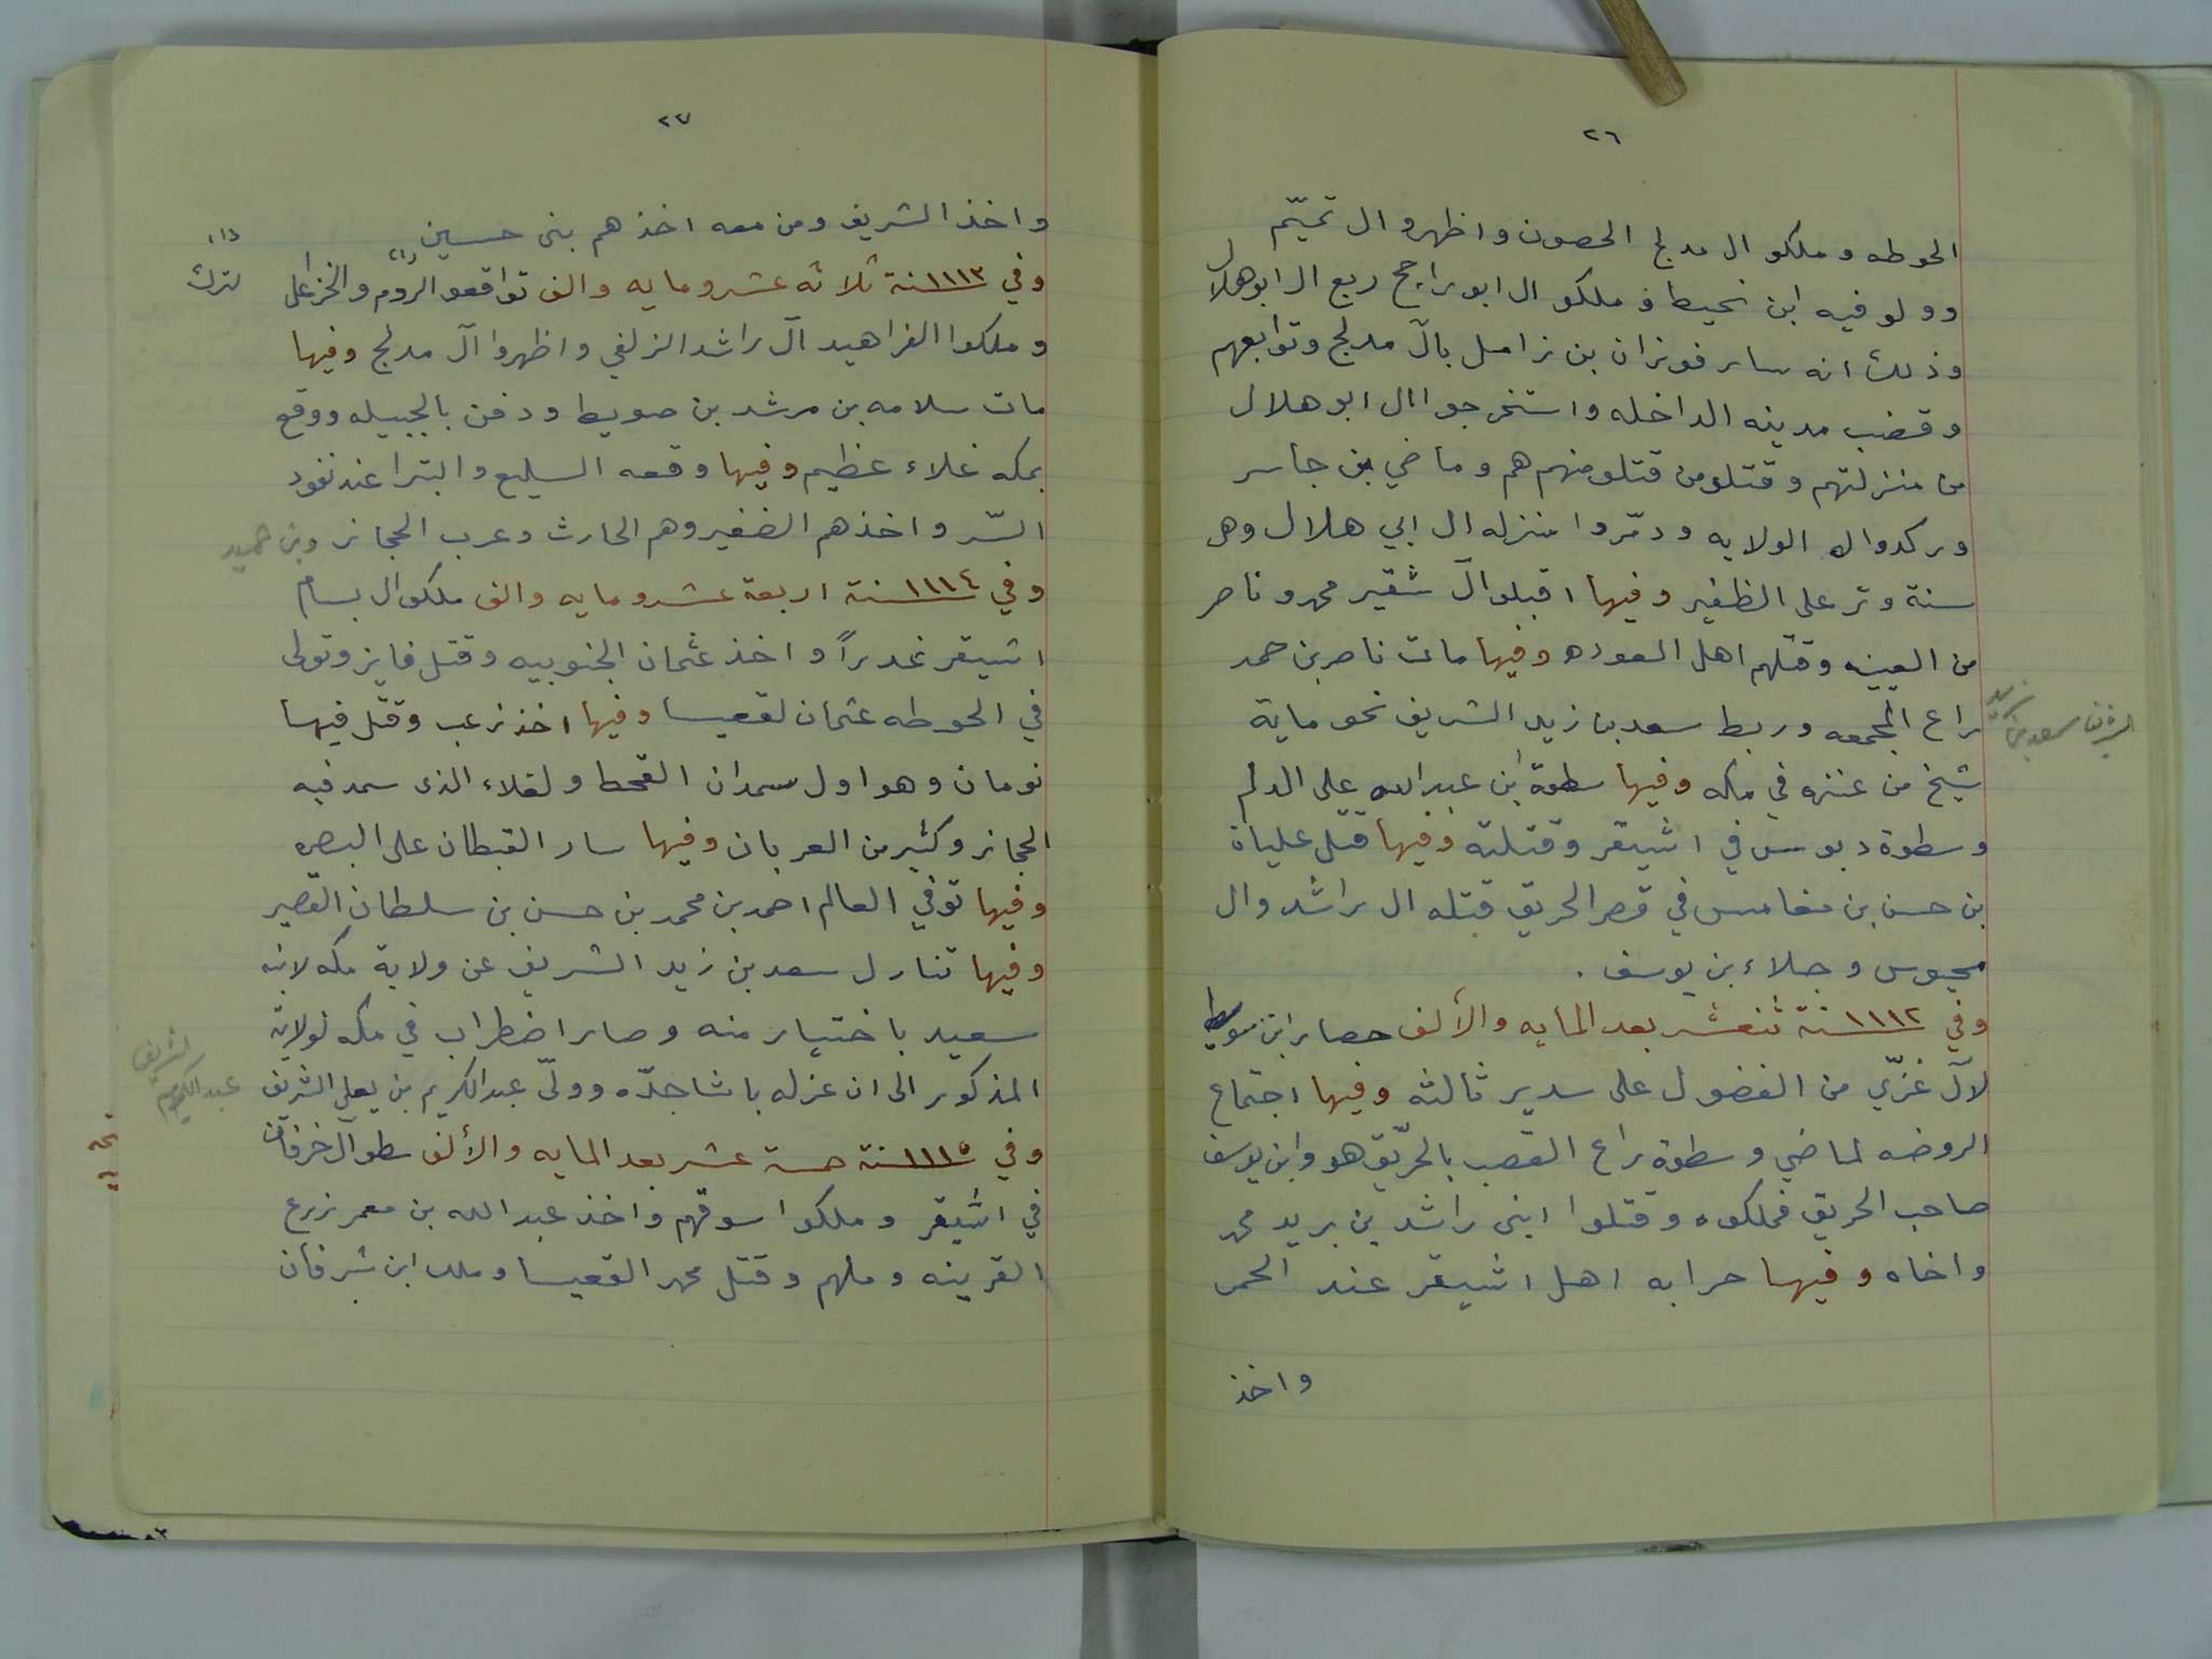 ٢٦
الحوطه وملكو ال مدلج الحصون واظهرو ال تميّم
وولو فيه ابن نحيط وملكو ال ابو راجح ربع ال ابوهلال
وذلك انه سار فوزان بن زامل بآل مدلج وتوابعهم
وقضب مدينه الداخله واستخرجو اال ابو هلال
من منزلتهم وقتلو من قتلو منهم هم وماضي بن جاسر
وركدوا له الولايه ودمّروا منزله ال ابي هلال وهى
سنة وتر على الظفير وفيها اقبلو آل شقير محمد وناصر
من العيينه وقتلهم اهل العوده وفيها مات ناصر بن حمد
راع المجمعه وربط سعد بن زيد الشريف نحو ماية
الشريف سعد بن زيد
شيخ من عنزه في مكه وفيها سطوة ابن عبدالله على الدلم
وسطوة دبوس في اشيقر وقتلته وفيها قتل علياة
بن حسن بن مغامس في قصر الحريق قتله ال راشد وال
محبوس وجلاء بن يوسف .
وفي ١١١٢ سنة ثنعشر بعد المايه والألف حصار ابن صويط
لآل غزّي من الفضول على سدير ثالثه وفيها اجتماع
الروضه لماضي وسطوة راع القصب بالحرّيق هو وابن يوسف
صاحب الحريق فملكوه وقتلوا ابنى راشد بن بريد محمد
واخاه وفيها حرابه اهل اشيقر عند الحمر
واخذ
٢٧
واخذ الشريف ومن معه اخذهم بنى حسين
وفي ١١١٣ سنة ثلاثه عشر ومايه والف تواقعو الروم (١) والخزاعل
(١) لترك
وملكوا الفراهيد آل راشد الزلفي واظهروا آل مدلج وفيها
مات سلامه بن مرشد بن صويط ودفن بالجبيله ووقع
بمكه غلاء عظيم وفيها وقعه السليع والبترا عند نفود
السّر واخذهم الضفير وهم الحارث وعرب الحجاز وبن حميد
وفي ١١١٤ سنة اربعة عشر ومايه والف ملكو ال بسام
اشيقر غدراً واخذ عثمان الجنوبيه وقتل فايز وتولى
في الحوطه عثمان لقعيسا وفيها اخذ زعب وقتل فيها
نومان وهو اول سمدان القحط ولغلاء الذى سمد فيه
الحجاز وكثير من العربان وفيها سار القبطان على البصره
وفيها توفي العالم احمد بن محمد بن حسن بن سلطان القصير
وفيها تنازل سعد بن زيد الشريف عن ولاية مكه لابنه
سعيد باختيار منه وصار اضطراب في مكه لولاية
المذكور الى ان عزله باشا جدّه وولّى عبدالكريم بن يعلى الشريف
الشريف عبدالكريم
وفي ١١١٥ سنة خمسة عشر بعد المايه والألف سطو آل خرفان
في اشيقر وملكوا سوقهم واخذ عبدالله بن معمر زرع
القرينه وملهم وقتل محمد القعيسا وملك ابن شرفان